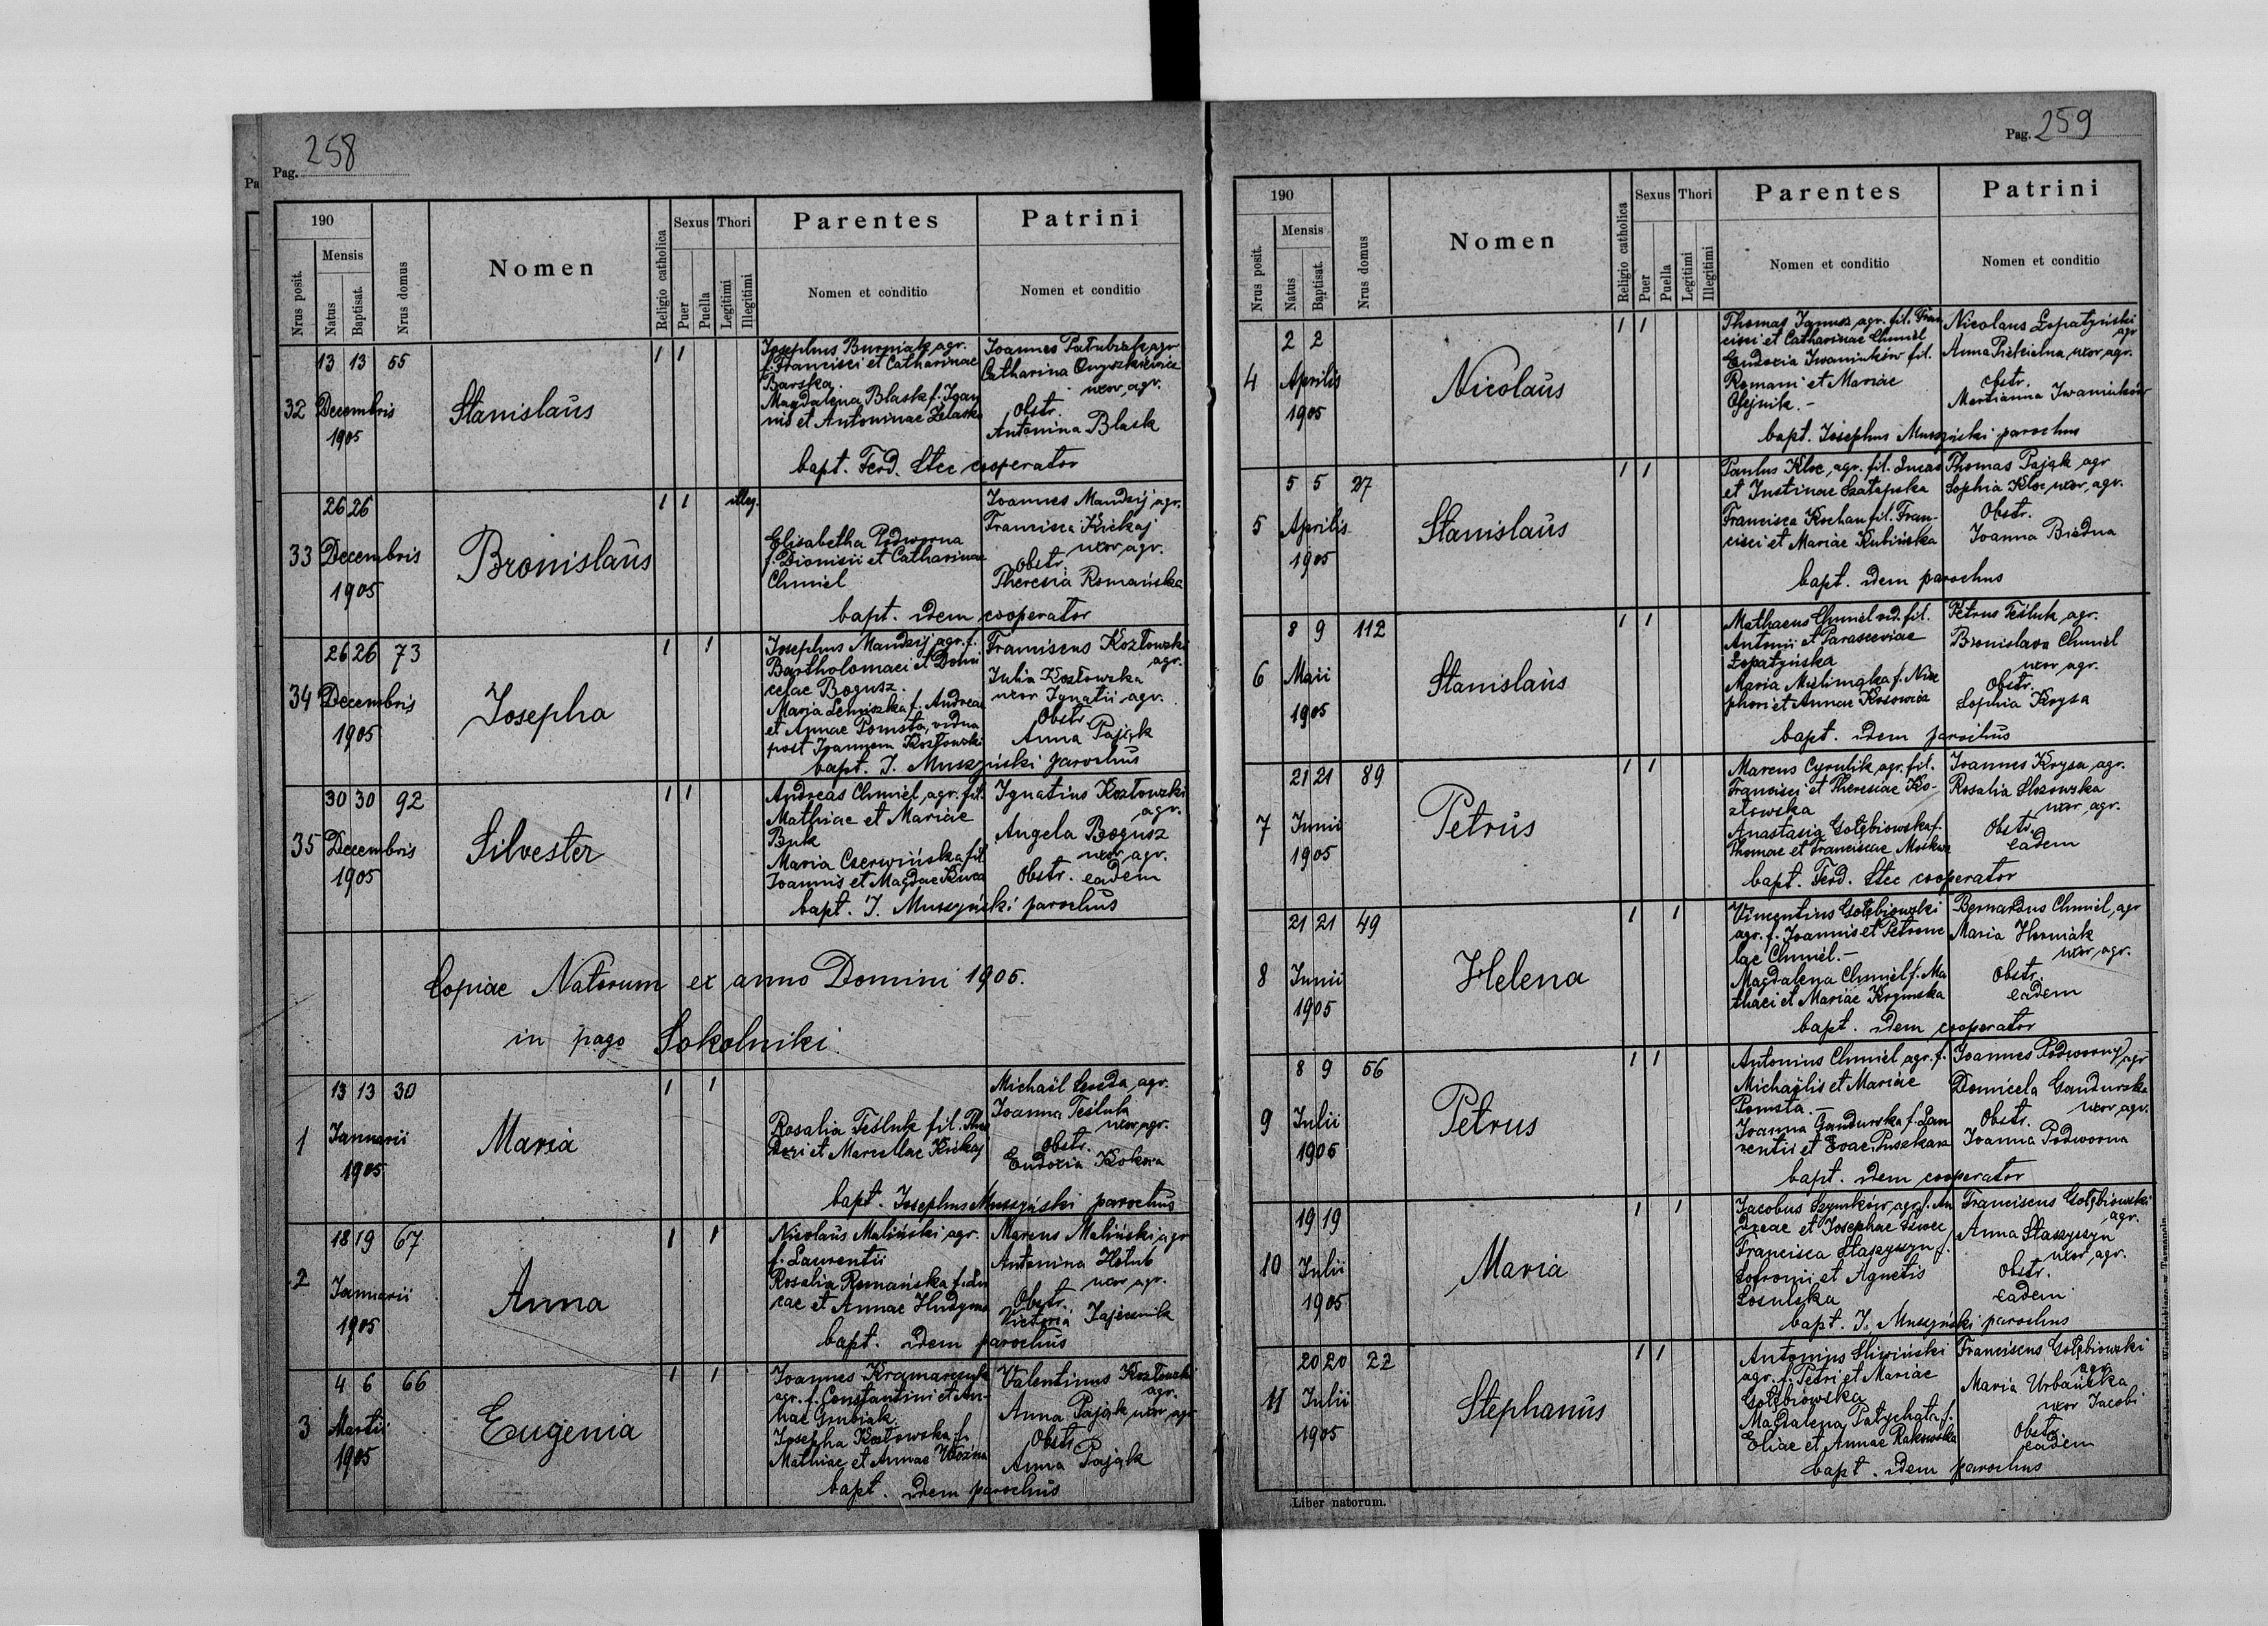 Pag. 258
190
Nrus posit.
Mensis
Natus
Baptisat.
Nrus domus
Nomen
Religio catholica
Sexus
Puer
Puella
Thori
Legitimi
Illegitimi
Parentes
Nomen et conditio
Patrini
Nomen et conditio
32
13 13 55
Decembris
1905
Stanislaus
1 1
Josephus Burniak, agr.
f. Francisci et Catharinae
Barska.
Magdalena Blask f. Joan
nis et Antoninae Żelasko
Joannes Patubiak, agr
Catharina Onyszkiewicz
uxor, agr.
Obstr.
Antonina Blask
bapt. Ferd. Stec cooperator
33
26 26
Decembris
1905
Bronislaus
1 1 illeg.
Elisabetha Podworna
f. Dionisii et Catharinae
Chmiel
Joannes Mandzij agr.
Francisca Kickaj
uxor, agr.
obstr.
Theresia Romańska
bapt. idem cooperator
34
26 26 73
Decembris
1905
Josepha
1 1
Josephus Mandzij agr. f.
Bartholomaei et Domi
celae Bogusz.
Maria Lemiszka f. Andreae
et Annae Pomsta, vidua
post Joannem Kozłowski
Franciscus Kozłowski
agr.
Julia Kozłowska
uxor Ignatii agr.
Obstr
Anna Pająk
bapt. J. Muszyński parochus
35
30 30 92
Decembris
1905
Silvester
1 1
Andreas Chmiel, agr. fil.
Mathiae et Mariae
Buk
Maria Czerwińska fil
Joannis et Magdae
Ignatius Kozłowski
agr.
Angela Bogusz
uxor, agr.
Obstr. eadem
bapt. J. Muszyński parochus
Copiae Natorum ex anno Domini 1905.
in pago Sokolniki.
1
13 13 30
Januarii
1905
Maria
1 1
Rosalia Teśluk fil. Theo
dori et Marcellae Kickaj
Michaël Sereda, agr.
Joanna Teśluk
uxor, agr.
obstr.
Eudoxia Kokora
bapt. Josephus Muszyński parochus
2
18 19 67
Januarii
1905
Anna
1 1
Nicolaus Maliński agr.
f. Laurentii
Rosalia Romańska f. Lu
cae et Annae Hudyma
Marcus Maliński agr
Antonina Hołub
uxor agr.
Obstr.
Victoria Zajęcznik
bapt. idem parochus
3
4 6 66
Martii
1905
Eugenia
1 1
Joannes Kramarczuk
agr. f. Constantini et An-
nae Grubiak.
Josepha Kozłowska f.
Mathiae et Annae Woźna
Valentinus Kozłowski
agr.
Anna Pająk uxor agr
Obstr
Anna Pająk
bapt. idem parochus
Pag. 259
190
Nrus posit.
Mensis
Natus
Baptisat.
Nrus domus
Nomen
Religio catholica
Sexus
Puer
Puella
Thori
Legitimi
Illegitimi
Parentes
Nomen et conditio
Patrini
Nomen et conditio
4
2 2
Aprilis
1905
Nicolaus
1 1
Thomas Janusz, agr. fil. Fran
cisci et Catharinae Chmiel
Eudoxia Iwaniuków fil.
Romani et Mariae
Olejnik. -
Nicolaus Łopatyński
agr
Anna uxor, agr.
obstr.
Marianna Iwaniuków
bapt. Josephus Muszyński parochus
5
5 5 27
Aprilis
1905
Stanislaus
1 1
Paulus Kloc, agr. fil. Lucae
et Justinae Szatapska
Francisca Kochan fil. Fran-
cisci et Mariae Kubińska
Thomas Pająk agr
Sophia Kloc, uxor, agr.
Obstr.
Joanna Biedna
bapt. idem parochus
6
8 9 112
Maii
1905
Stanislaus
1 1
Mathaeus Chmiel vid. fil.
Antonii et Parasceviae
Łopatyńska
Maria f. Nice
phori et Annae Kosowicz
Petrus Teśluk, agr.
Bronislava Chmiel
uxor agr.
Obstr.
Sophia Krysa
bapt. idem parochus
7
21 21 89
Junii
1905
Petrus
1 1
Marcus Cyrulik, agr. fil.
Francisci et Theresiae Ko-
złowska
Anastasia Gołębiowska f.
Thomae et Franciscae Moskwa
Joannes Krysa, agr.
Rosalia
uxor, agr.
Obstr.
eadem
bapt. Ferd. Stec cooperator
8
21 21 49
Junii
1905
Helena
1 1
Vincentius Gołębiowski
agr. f. Joannis et Petrone
lae Chmiel. -
Magdalena Chmiel f. Ma
thaei et Mariae Krymska
Bernardus Chmiel, agr
Maria Horniak
uxor, agr.
Obstr.
eadem
bapt. idem cooperator
9
8 9 56
Julii
1905
Petrus
1 1
Antonius Chmiel, agr. f.
Michaëlis et Mariae
Pomsta. -
Joanna Gandurska f. Lau
rentii et Evae Puszkarz
Joannes Podworny, agr
Domicela Gandurska
uxor, agr.
Obstr.
Joanna Podworna
bapt. idem cooperator
10
19 19
Julii
1905
Maria
1 1
Jacobus Szymków, agr. f. An
dreae et Josephae Szwec
Francisca Staszyszyn f.
Sofronii et Agnetis
Sosulska
Franciscus Gołębiowski
agr.
Anna Staszyszyn
uxor, agr.
Obstr.
eadem
bapt. J. Muszyński parochus
11
20 20 22
Julii
1905
Stephanus
1 1
Antonius Śliwiński
agr. f. Petri et Mariae
Gołębiowska
Magdalena Patychata f.
Eliae et Annae Rakowska
Franciscus Gołębiowski
agr.
Maria Urbańska
uxor Jacobi
Obstr.
eadem
bapt. idem parochus
Liber natorum.